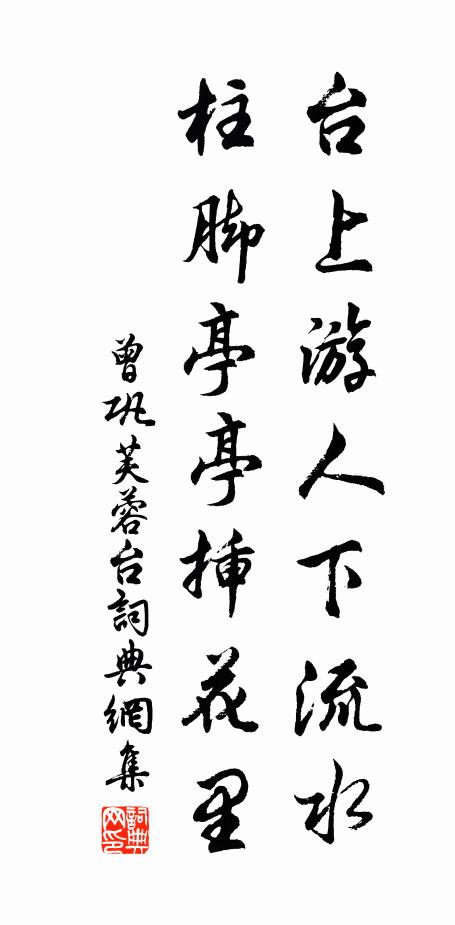 台上游人下流水
柱脚亭亭挿花里
曾巩芙蓉台詞典網集
詞典网印